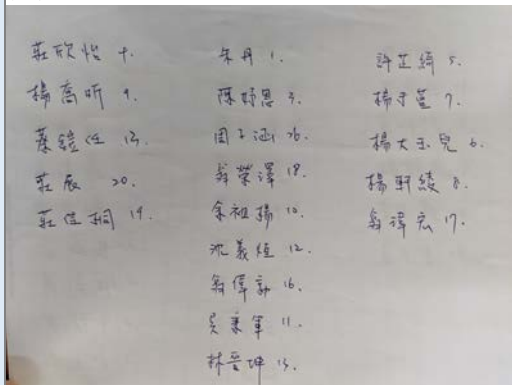 莊欣怡 4.
楊喬昕 9.
蔡鎧任 13.
莊辰 20.
莊佳桐 19.
朱丹 1.
陳妤恩 3.
周子涵 26.
翁榮澤 18.
余祖揚 10.
沈義烜 12.
翁偉勛 16.
吳秉軍 11.
林晉坤 15.
許芷綺 5.
楊于萱 7.
楊大玉兒 6.
楊軒綾 8.
翁諱宏 17.